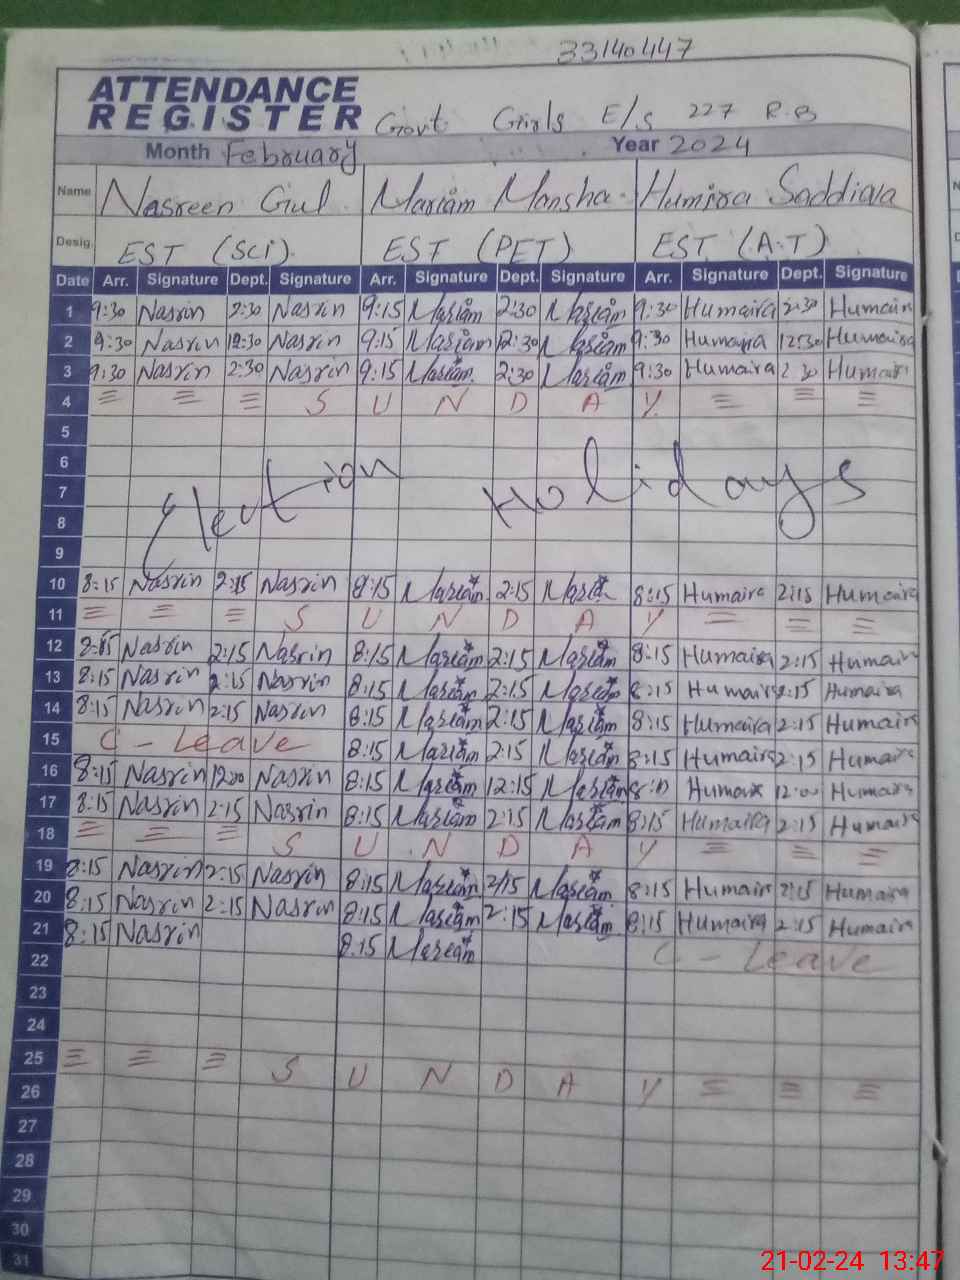 33140447
ATTENDANCE
REGISTER Govt Girls E/S 227 R.B
Month February Year 2024
Name Nasreen Gul Mariam Mansha Humira Saddiqa
Desig. EST (Sci) EST (PET) EST (A.T)
Date Arr. Signature Dept. Signature Arr. Signature Dept. Signature Arr. Signature Dept. Signature
1 9:30 Nasrin 2:30 Nasrin 9:15 Mariam 2:30 Mariam 9:30 Humaira 2:30 Humaira
2 9:30 Nasrin 12:30 Nasrin 9:15 Mariam 12:30 Mariam 9:30 Humaira 12:30 Humaira
3 9:30 Nasrin 2:30 Nasrin 9:15 Mariam 2:30 Mariam 9:30 Humaira 2:30 Humaira
4 S U N D A Y
5
6
7 Election Holidays
8
9
10 8:15 Nasrin 2:15 Nasrin 8:15 Mariam 2:15 Maria 8:15 Humaira 2:15 Humaira
11 S U N D A Y
12 8:15 Nasrin 2:15 Nasrin 8:15 Mariam 2:15 Mariam 8:15 Humaira 2:15 Humaira
13 8:15 Nasrin 2:15 Nasrin 8:15 Mariam 2:15 Mariam 8:15 Humaira 2:15 Humaira
14 8:15 Nasrin 2:15 Nasrin 8:15 Mariam 2:15 Mariam 8:15 Humaira 2:15 Humaira
15 C - Leave 8:15 Mariam 2:15 Mariam 8:15 Humaira 2:15 Humaira
16 8:15 Nasrin 12:00 Nasrin 8:15 Mariam 12:15 Mariam Humaira 12:00 Humaira
17 8:15 Nasrin 2:15 Nasrin 8:15 Mariam 2:15 Mariam 8:15 Humaira 2:15 Humaira
18 S U N D A Y
19 8:15 Nasrin 2:15 Nasrin 8:15 Mariam 2:15 Mariam 8:15 Humaira 2:15 Humaira
20 8:15 Nasrin 2:15 Nasrin 8:15 Mariam 2:15 Mariam 8:15 Humaira 2:15 Humaira
21 8:15 Nasrin 8:15 Mariam C - Leave
22
23
24
25 S U N D A Y
26
27
28
29
30
31
21-02-24 13:47